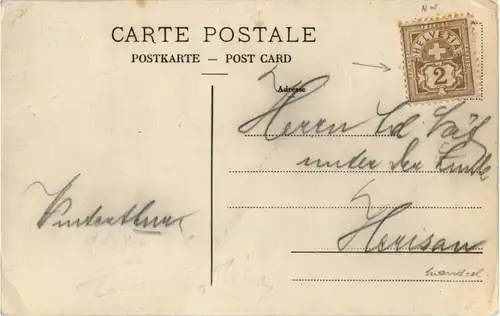 NW
CARTE POSTALE
HELVETIA
2
POSTKARTE — POST CARD
Adresse
Herrn Ed.
unter der Linde
Winterthur
Herisau